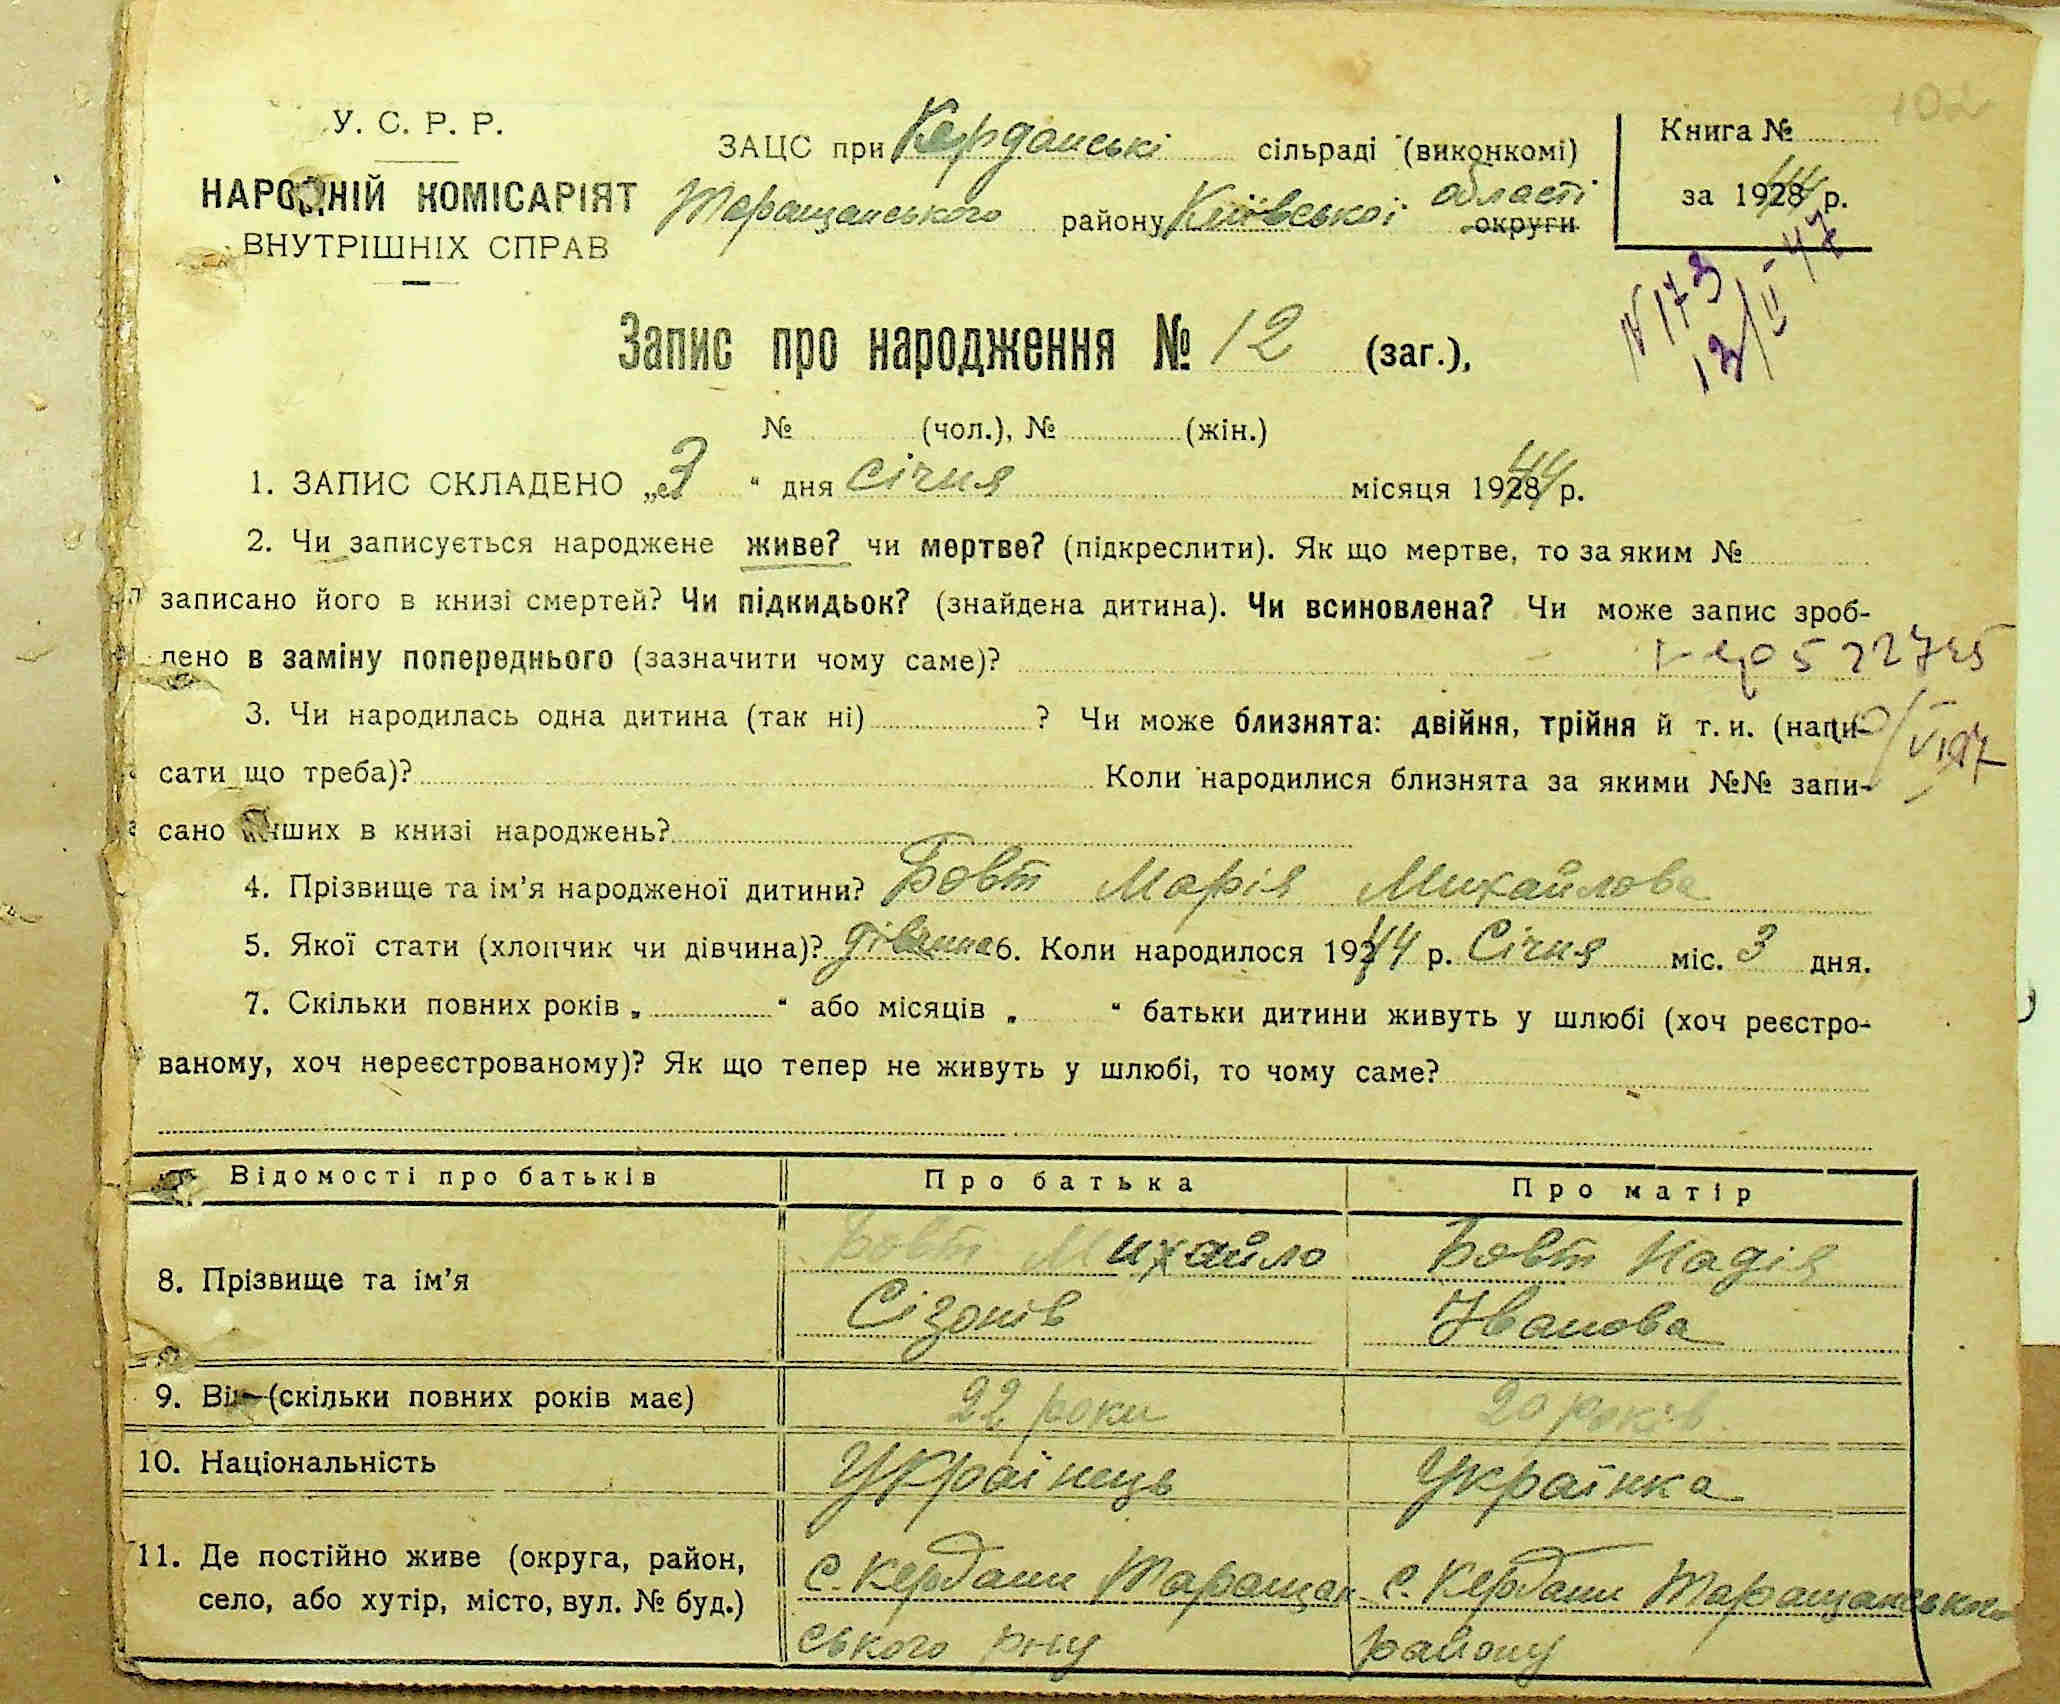 102
У. С. Р. Р.
НАРОДНІЙ КОМІСАРІЯТ
ВНУТРІШНІХ СПРАВ
ЗАЦС при Керданські сільраді (виконкомі)
Таращанського району Київської області округи
Книга №
за 192844 р.
N 173
13/II-47
Запис про народження № 12 (заг.),
№ (чол.), № (жін.)
1. ЗАПИС СКЛАДЕНО „3“ дня Січня місяця 192844 р.
2. Чи записується народжене живе? чи мертве? (підкреслити). Як що мертве, то за яким №
записано його в книзі смертей? Чи підкидьок? (знайдена дитина). Чи всиновлена? Чи може запис зроб-
лено в заміну попереднього (зазначити чому саме)?
3. Чи народилась одна дитина (так ні) ? Чи може близнята: двійня, трійня й т. и. (напи-
сати що треба)? Коли народилися близнята за якими №№ запи-
сано інших в книзі народжень?
4. Прізвище та ім’я народженої дитини? Бовт Марія Михайлова
5. Якої стати (хлопчик чи дівчина)? дівчина 6. Коли народилося 19244 р. Січня міс. 3 дня.
7. Скільки повних років „ “ або місяців „ “ батьки дитини живуть у шлюбі (хоч реєстро-
ваному, хоч нереєстрованому)? Як що тепер не живуть у шлюбі, то чому саме?
Відомості про батьків Про батька Про матір
8. Прізвище та ім’я Бовт Михайло Сізонів Бовт Надія Іванова
9. Вік (скільки повних років має) 22 роки 20 років
10. Національність Українець Українка
11. Де постійно живе (округа, район,
село, або хутір, місто, вул. № буд.)
с. Кердани Таращан
ського р-ну
с. Кердани Таращанського
району